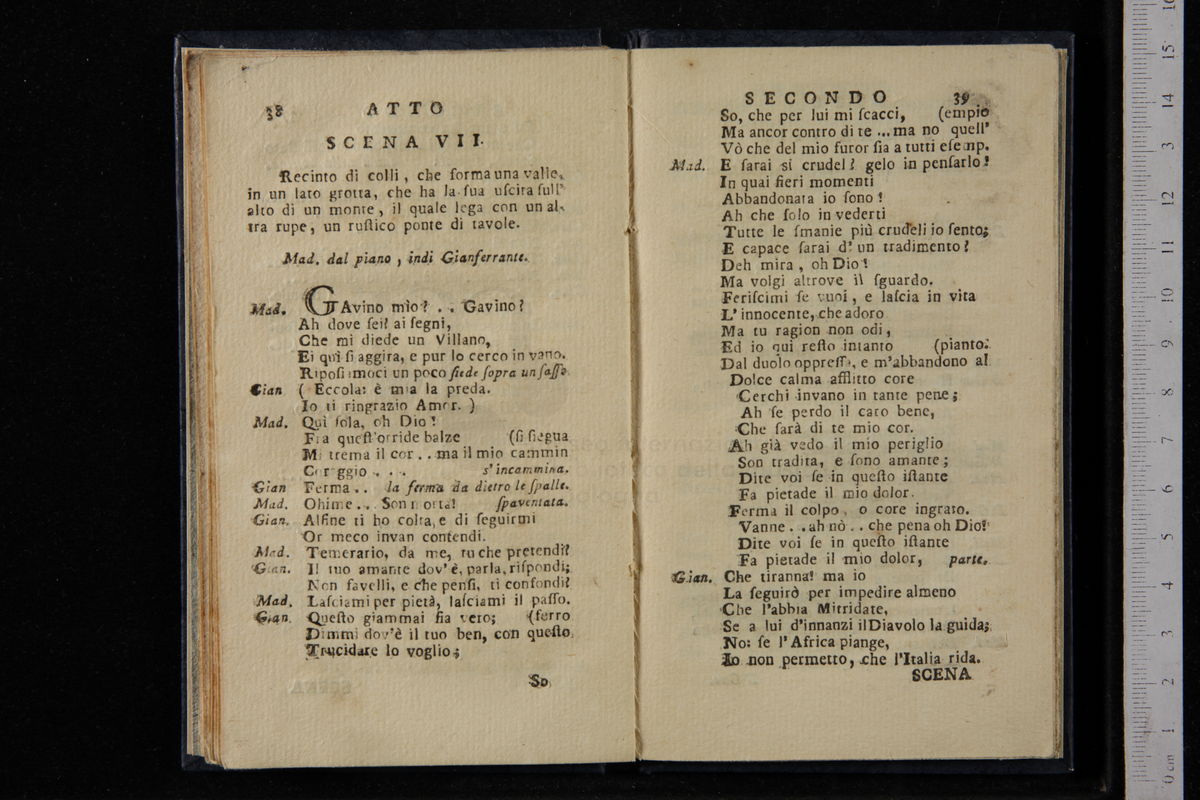 38 ATTO
SCENA VII.
Recinto di colli, che forma una valle,
in un lato grotta, che ha la sua uscita full'
alto di un monte, il quale lega con un al-
tra rupe, un rustico ponte di tavole.
Mad. dal piano, indi Gianferrante.
Mad. GAvino mio? . . Gavino?
Ah dove sei? ai segni,
Che mi diede un Villano,
Ei quì si aggira, e pur lo cerco in vano.
Riposiamoci un poco siede sopra un sasso
Gian ( Eccola: è mia la preda.
Io ti ringrazio Amor. )
Mad. Quì sola, oh Dio!
Fra quest'orride balze (si siegua
Mi trema il cor . . ma il mio cammin
Coraggio . . . s'incammina.
Gian Ferma . . la ferma da dietro le spalle.
Mad. Ohime . . Son morta! spaventata.
Gian. Alfine ti ho colta, e di seguirmi
Or meco invan contendi.
Mad. Temerario, da me, tu che pretendi?
Gian. Il tuo amante dov'è, parla, rispondi;
Non favelli, e che pensi, ti confondi?
Mad. Lasciami per pietà, lasciami il passo.
Gian. Questo giammai sia vero; (ferro
Dimmi dov'è il tuo ben, con questo
Trucidare lo voglio;
So,
SECONDO 39
So, che per lui mi scacci, (empio
Ma ancor contro di te ... ma no quell'
Vò che del mio furor sia a tutti esemp.
Mad. E sarai si crudel? gelo in pensarlo!
In quai fieri momenti
Abbandonata io sono!
Ah che solo in vederti
Tutte le smanie più crudeli io sento;
E capace sarai d' un tradimento?
Deh mira, oh Dio!
Ma volgi altrove il sguardo.
Feriscimi se vuoi, e lascia in vita
L' innocente, che adoro
Ma tu ragion non odi,
Ed io qui resto intanto (pianto.
Dal duolo oppressa, e m'abbandono al
Dolce calma afflitto core
Cerchi invano in tante pene;
Ah se perdo il caro bene,
Che sarà di te mio cor.
Ah già vedo il mio periglio
Son tradita, e sono amante;
Dite voi se in questo istante
Fa pietade il mio dolor.
Ferma il colpo, o core ingrato.
Vanne . . ah nò . . che pena oh Dio!
Dite voi se in questo istante
Fa pietade il mio dolor, parte.
Gian. Che tiranna! ma io
La seguirò per impedire almeno
Che l'abbia Mitridate,
Se a lui d'innanzi il Diavolo la guida;
No: se l' Africa piange,
Io non permetto, che l'Italia rida.
SCENA